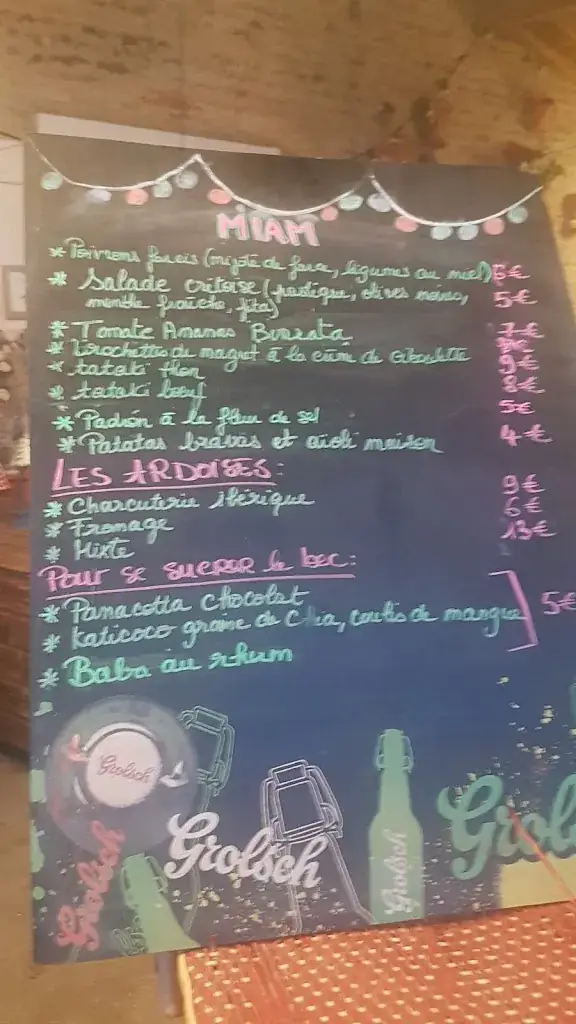 MIAM
* Poivrons farcis (mijoté de farce, légumes au miel) 6€
* Salade crétoise (pastèque, olives noires, 5€
menthe fraîche, féta)
* Tomate Ananas Burrata 7€
* Brochettes de magret à la crème de ciboulette
* tataki thon 9€
* tataki bœuf 8€
* Padrón à la fleur de sel 5€
* Patatas bravas et aïoli maison 4€
LES ARDOISES:
* Charcuterie ibérique 9€
* Fromage 6€
* Mixte 13€
Pour se sucrer le bec:
* Panacotta Chocolat
* Katicoco graine de Chia, coulis de mangue 5€
* Baba au rhum
Grolsch
Grolsch
Grolsch
Grolsch
Grols